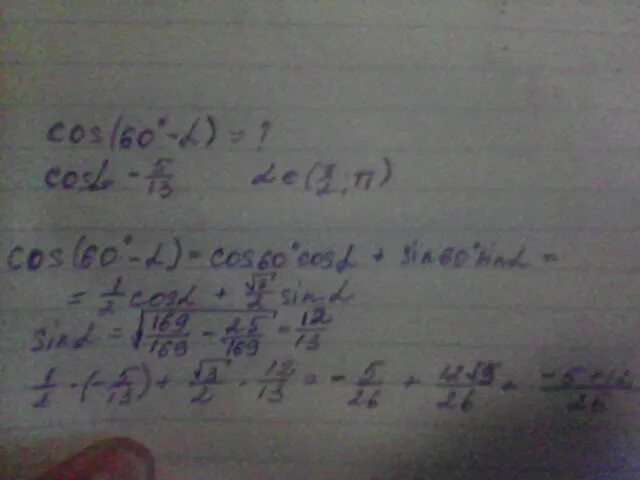 cos(60° - α) = ?
cosα - 5/13 α ∈ (π/2; π)
cos(60° - α) = cos60° cosα + sin60° sinα =
= 1/2 cosα + √3/2 sinα
sinα = √(169/169 - 25/169) = 12/13
1/2 · (-5/13) + √3/2 · 12/13 = - 5/26 + 12√3/26 = -5+12/26